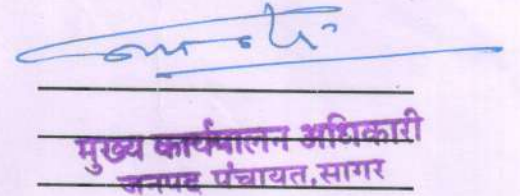 मुख्य कार्यपालन अधिकारी
जनपद पंचायत,सागर